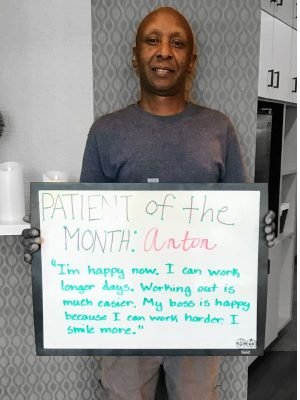 PATIENT of the
MONTH: Anton
"I'm happy now. I can work
longer days. Working out is
much easier. My boss is happy
because I can work harder. I
smile more."